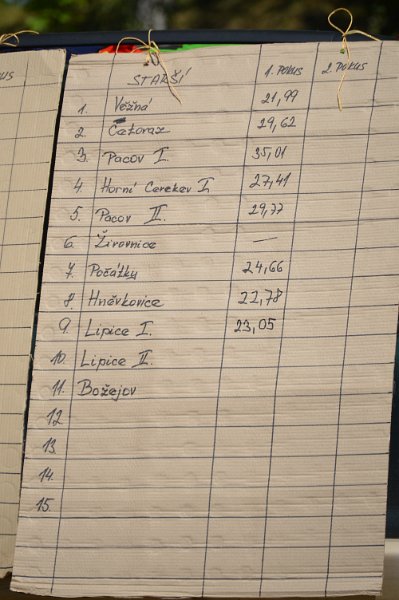 KUS
STARŠÍ 1. POKUS 2. POKUS
1. Věžná 21,99
2. Čatoraz 29,62
3. Pacov I. 35,01
4 Horní Cerekev I. 27,41
5. Pacov II. 29,77
6. Žirovnice —
7. Počátky 24,66
8. Hněvkovice 22,78
9. Lipice I. 23,05
10. Lipice II.
11. Božejov
12.
13.
14.
15.